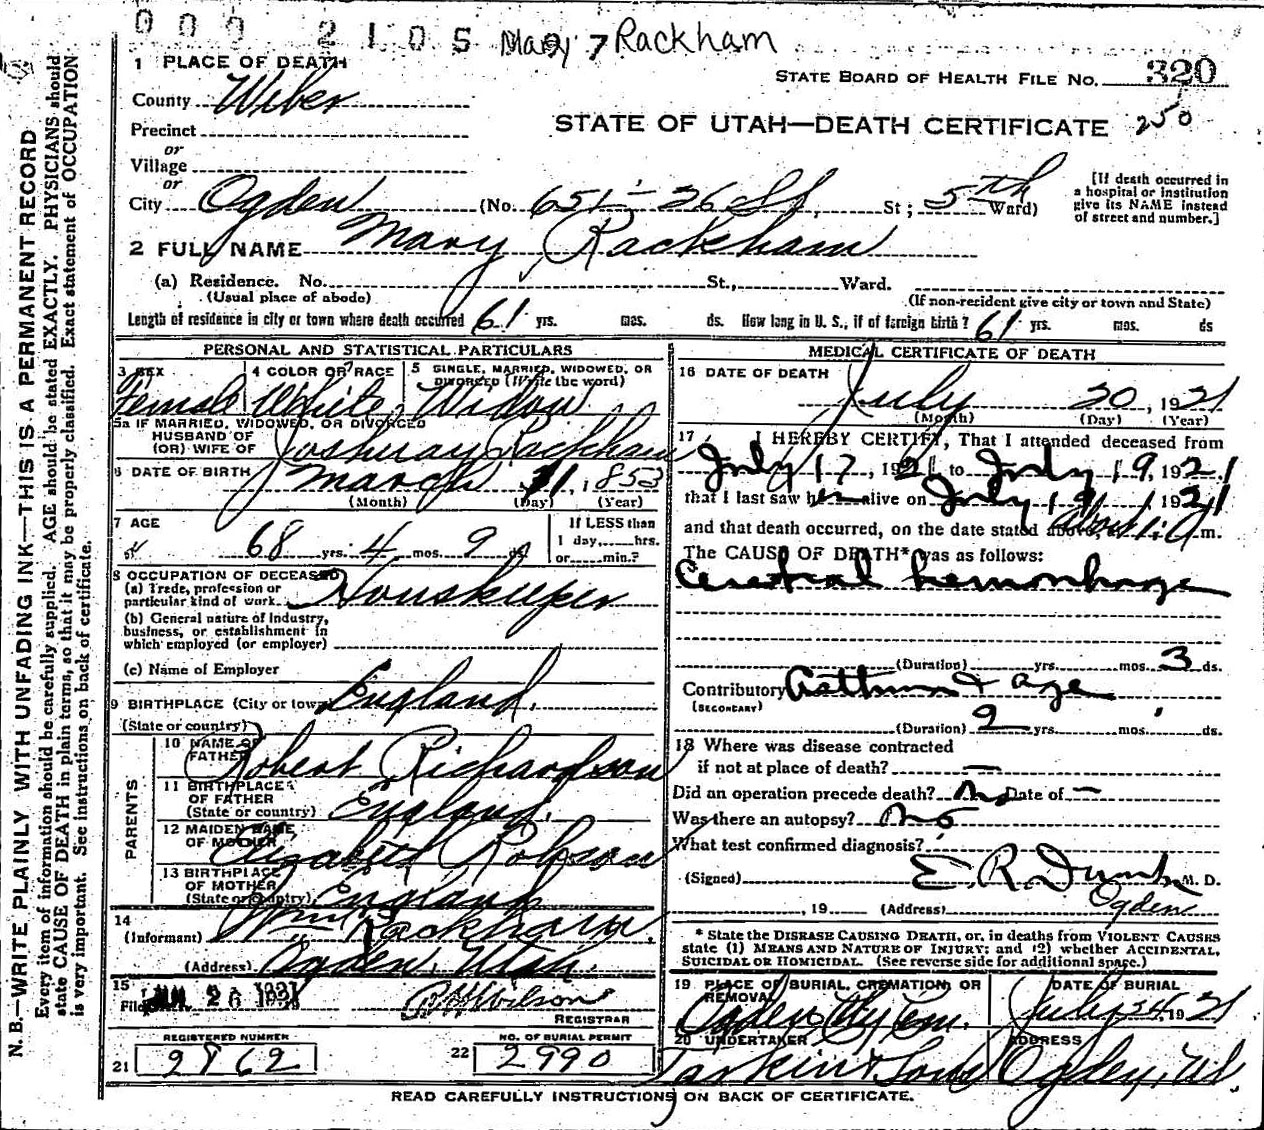 000 2105 Mary Rackham
1 PLACE OF DEATH
STATE BOARD OF HEALTH FILE NO. 320
County Weber
STATE OF UTAH—DEATH CERTIFICATE 250
Precinct
or
Village
or
City Ogden (No. 651 - 26 St, St; 5th Ward)
[If death occurred in
a hospital or institution
give its NAME instead
of street and number.]
2 FULL NAME Mary Rackham
(a) Residence. No. St., Ward.
(Usual place of abode) (If non-resident give city or town and State)
Length of residence in city or town where death occurred 61 yrs. mos. ds. How long in U. S., if of foreign birth? 61 yrs. mos. ds
PERSONAL AND STATISTICAL PARTICULARS
3 SEX 4 COLOR OR RACE 5 SINGLE, MARRIED, WIDOWED, OR
DIVORCED (Write the word)
Female White Widow
5a IF MARRIED, WIDOWED, OR DIVORCED
HUSBAND OF
(OR) WIFE OF Joshuay Rackham
6 DATE OF BIRTH March 11, 1853
(Month) (Day) (Year)
7 AGE
68 yrs. 4 mos. 9 ds
If LESS than
1 day,....hrs.
or......min.?
8 OCCUPATION OF DECEASED
(a) Trade, profession or
particular kind of work Houskeeper
(b) General nature of industry,
business, or establishment in
which employed (or employer)
(c) Name of Employer
9 BIRTHPLACE (City or town) England.
(State or country)
PARENTS
10 NAME OF
FATHER Robert Richardson
11 BIRTHPLACE
OF FATHER
(State or country) England.
12 MAIDEN NAME
OF MOTHER Elizabeth Robson
13 BIRTHPLACE
OF MOTHER
(State or country) England
14
(Informant) Wm Rackham.
(Address) Ogden, Utah.
15
Filed 26 1921
REGISTRAR
REGISTERED NUMBER
21 2962
NO. OF BURIAL PERMIT
22 2990
MEDICAL CERTIFICATE OF DEATH
16 DATE OF DEATH
July 20, 1921
(Month) (Day) (Year)
17 I HEREBY CERTIFY, That I attended deceased from
July 17, 1921 to July 19, 1921
that I last saw her alive on July 19, 1921
and that death occurred, on the date stated above, at about 1:0 m.
The CAUSE OF DEATH* was as follows:
Cerebral hemorrhage
(Duration) yrs. mos. 3 ds.
Contributory Asthma & age
(SECONDARY)
(Duration) 2 yrs. mos. ds.
18 Where was disease contracted
if not at place of death? —
Did an operation precede death? No Date of —
Was there an autopsy? No
What test confirmed diagnosis?
(Signed) E. R. Dumke M. D.
, 19 (Address) Ogden
* State the DISEASE CAUSING DEATH, or, in deaths from VIOLENT CAUSES
state (1) MEANS AND NATURE OF INJURY; and (2) whether ACCIDENTAL,
SUICIDAL OR HOMICIDAL. (See reverse side for additional space.)
19 PLACE OF BURIAL, CREMATION, OR
REMOVAL
Ogden City Cem.
DATE OF BURIAL
July 24, 1921
20 UNDERTAKER
Larkin & Sons
ADDRESS
Ogden, Ut.
READ CAREFULLY INSTRUCTIONS ON BACK OF CERTIFICATE.
N. B.—WRITE PLAINLY WITH UNFADING INK—THIS IS A PERMANENT RECORD
Every item of information should be carefully supplied. AGE should be stated EXACTLY. PHYSICIANS should
state CAUSE OF DEATH in plain terms, so that it may be properly classified. Exact statement of OCCUPATION
is very important. See instructions on back of certificate.